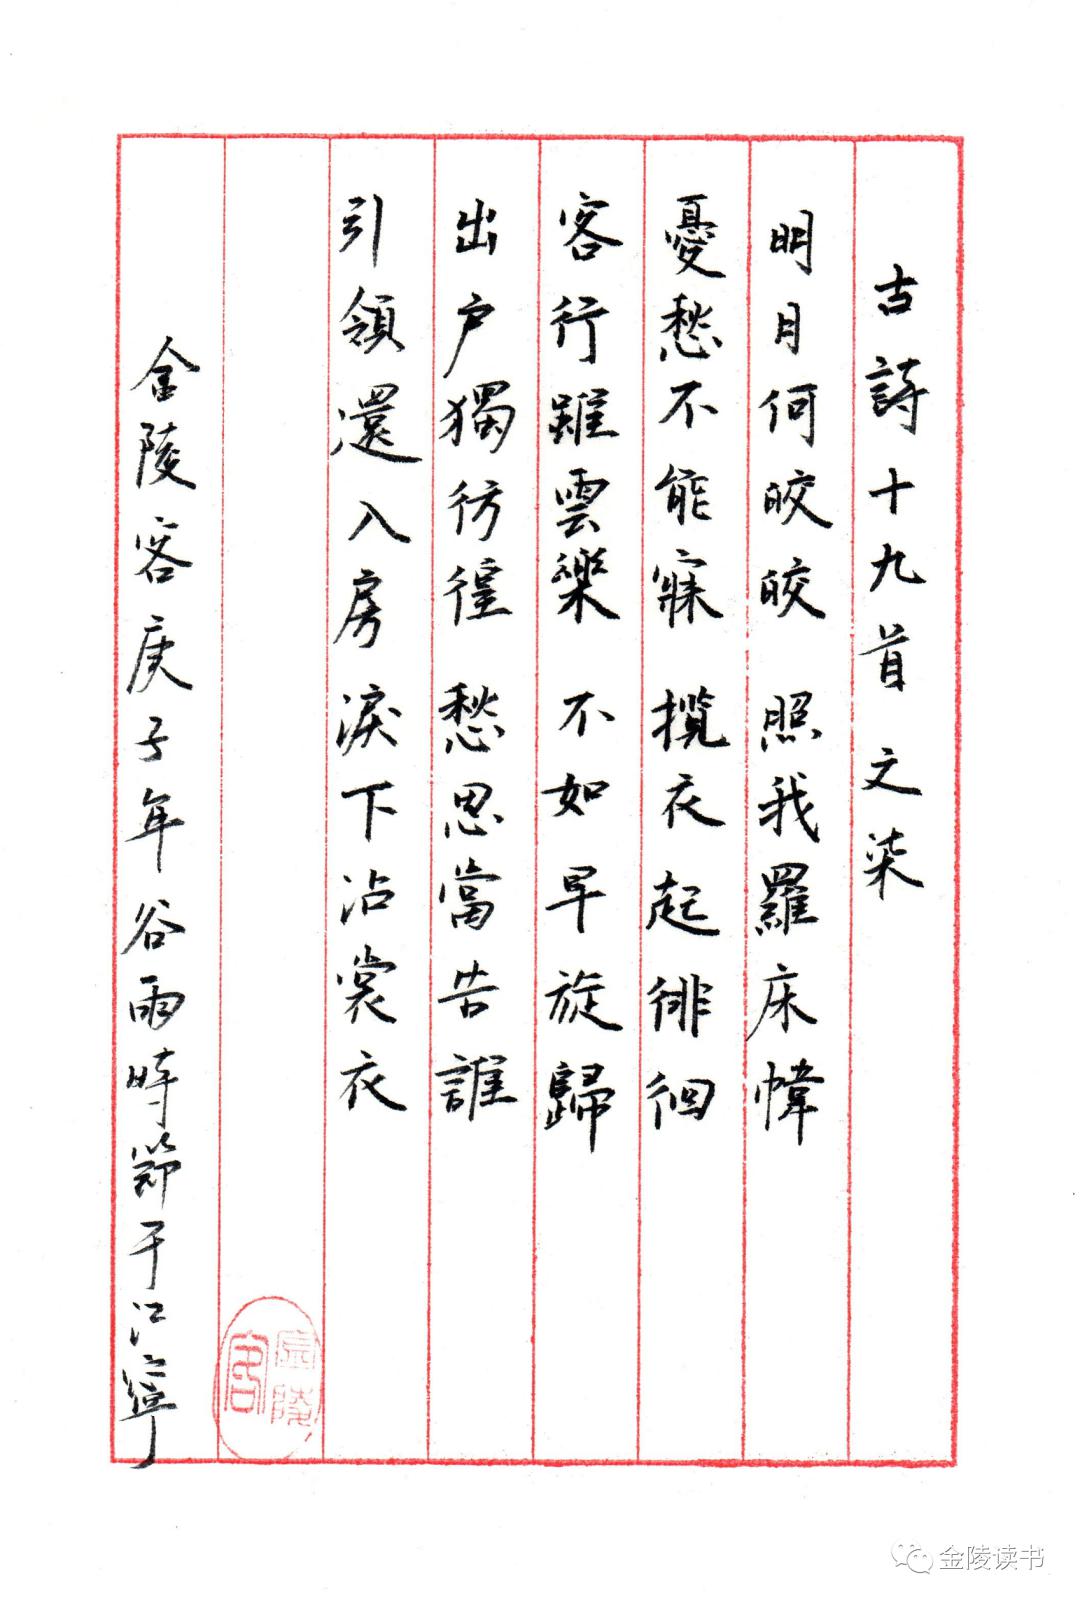 古詩十九首 文柒
明月何皎皎 照我羅床幃
憂愁不能寐 攬衣起徘徊
客行雖雲樂 不如早旋歸
出户獨彷徨 愁思當告誰
引領還入房 淚下沾裳衣
金陵客庚子年谷雨時節于江寧
金陵客
金陵读书